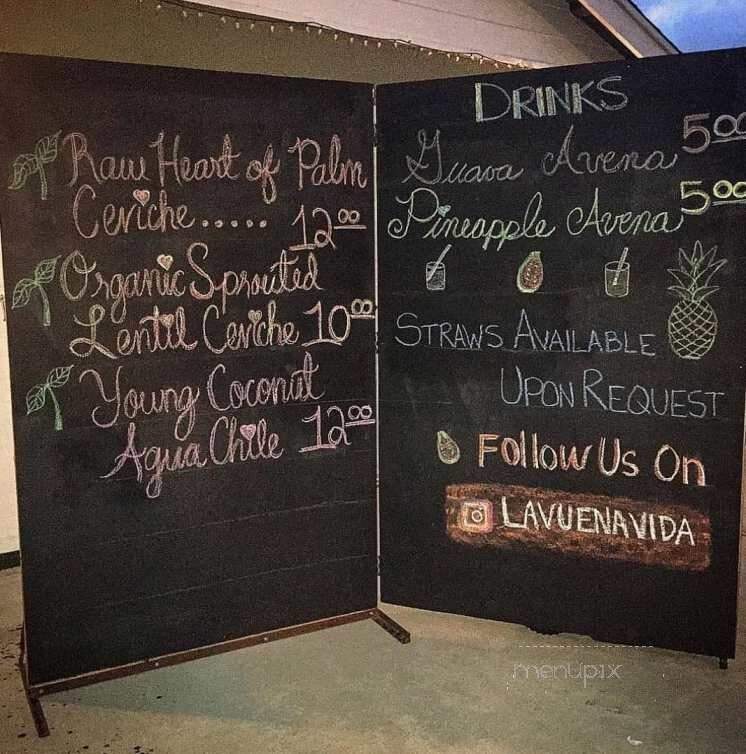 Raw Heart of Palm
Ceviche..... 12.00
Organic Sprouted
Lentil Ceviche 10.00
Young Coconut
Agua Chile 12.00
DRINKS
Guava Avena 5.00
Pineapple Avena 5.00
STRAWS AVAILABLE
UPON REQUEST
Follow Us On
LAVUENAVIDA
menupix